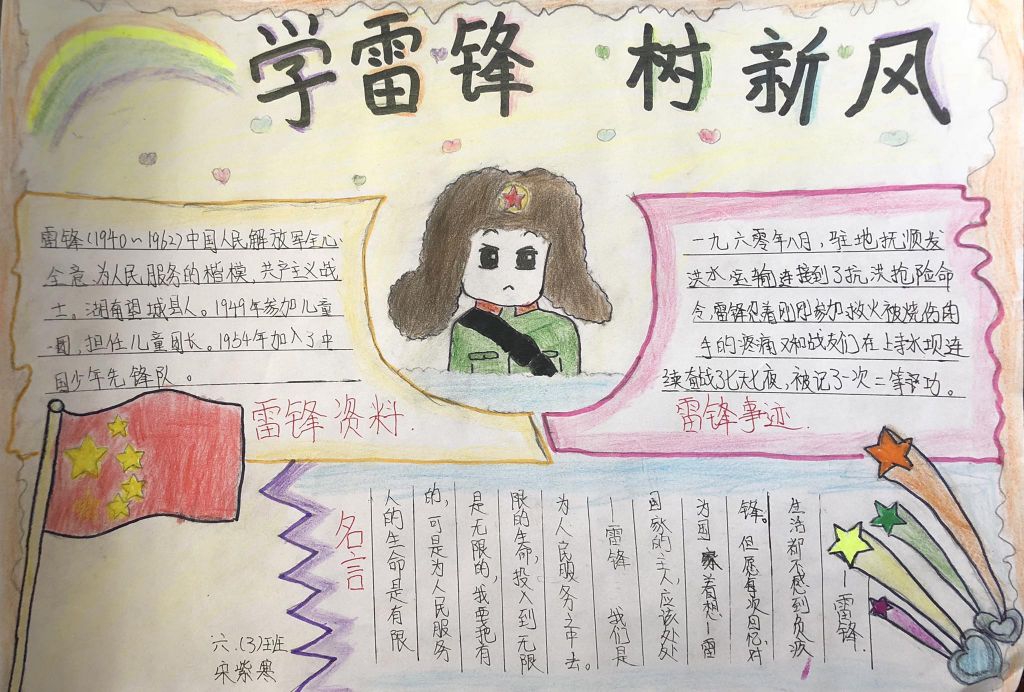 学雷锋 树新风
雷锋(1940~1962)中国人民解放军全心
全意为人民服务的楷模,共产主义战
士。湖南望城县人。1949年参加儿童
团,担任儿童团长。1954年加入了中
国少年先锋队。
雷锋资料.
一九六零年八月,驻地抚顺发
洪水,运输连接到了抗洪抢险命
令,雷锋忍着刚刚参加救火被烧伤的
手的疼痛又和战友们在上寺水坝连
续奋战了七天七夜,被记了一次二等功。
雷锋事迹.
名言
人的生命是有限
的,可是为人民服务
是无限的,我要把有
限的生命,投入到无限
为人民服务之中去。
—雷锋 我们是
国家的主人,应该处处
为国家着想—雷
锋。但愿每次回忆,对
生活都不感到负疚
—雷锋.
六.(3)班
宋紫寒